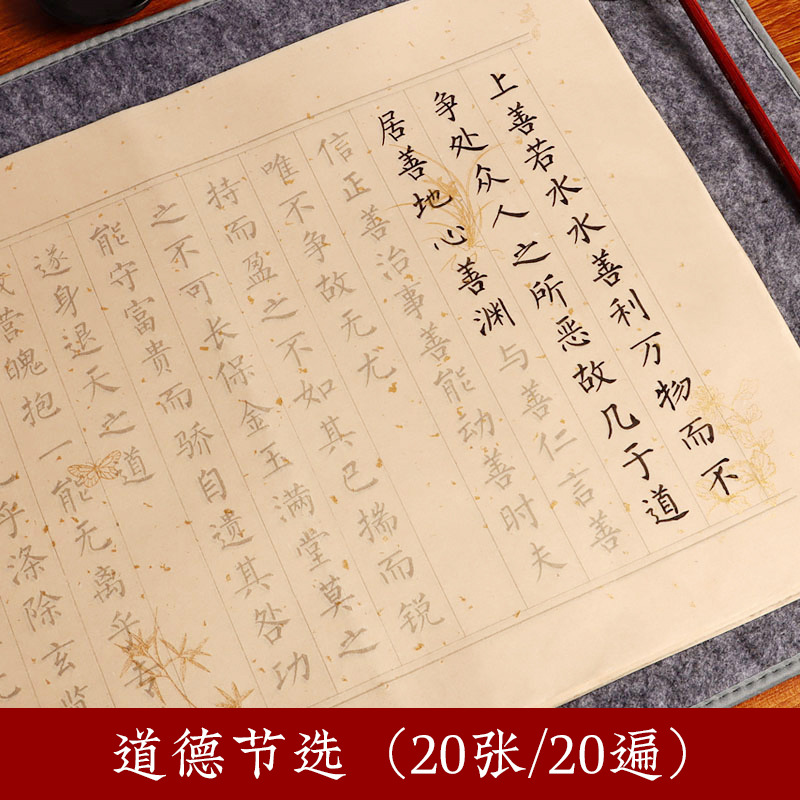 上善若水水善利万物而不
争处众人之所恶故几于道
居善地心善渊与善仁言善
信正善治事善能动善时夫
唯不争故无尤
持而盈之不如其已揣而锐
之不可长保金玉满堂莫之
能守富贵而骄自遗其咎功
遂身退天之道
营魄抱一能无离乎专
乎涤除玄览
道德节选（20张/20遍）